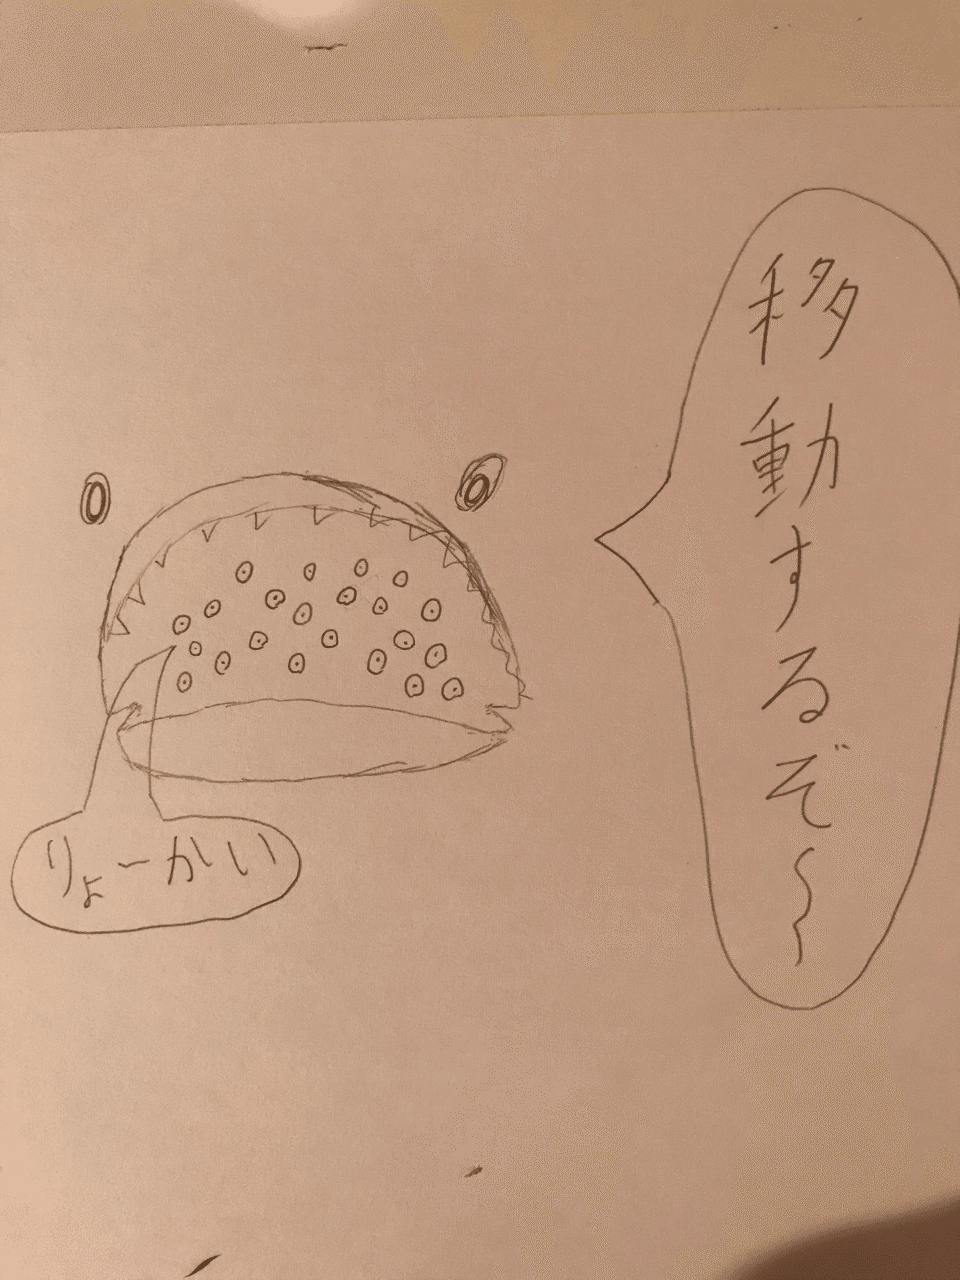 移動するぞ〜
りょーかい